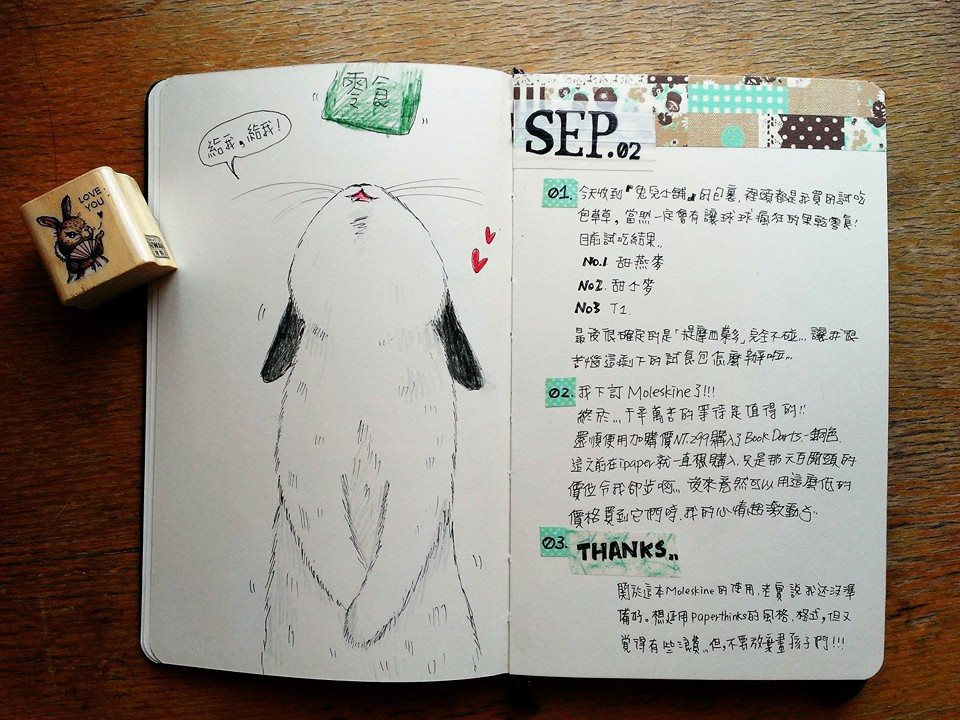 零食
給我,給我!
LOVE YOU
SEP.02
01. 今天收到『兔兒小舖』的包裹,裡頭都是我買的試吃
包草草,當然一定會有讓球球瘋狂的果乾零食!
目前試吃結果..
No.1 甜燕麥
No2. 甜小麥
No3 T1.
最後很確定的是「提摩西幕多」完全不碰... 讓我很
苦惱這剩下的試食包怎麼辦啦...
02. 我下訂 Moleskine 了!!!
終於... 千辛萬苦的等待是值得的!!
還順便用加購價NT.299購入了Book Darts.-銅色.
這之前在ipaper就一直想購入.只是那天百開頭的
價位令我卻步啊... 後來竟然可以用這麼低的
價格買到它們時.我的心情超激動
03. THANKS..
關於這本Moleskine的使用.老實說我还沒準
備好。想延用Paperthinks的風格、格式,但又
覺得有些浪費...但,不要放棄畫孩子們!!!